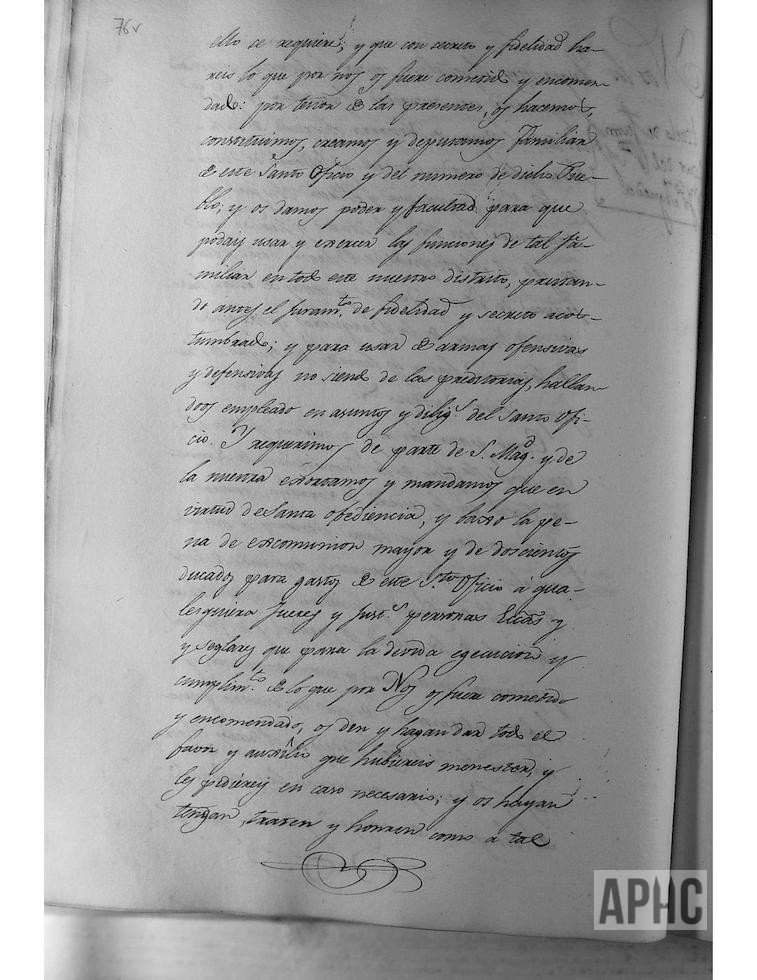 76v
ello se requiere; y que con secreto y fidelidad ha-
reis lo que por nos os fuere cometido y encomen-
dado: por tenor de las presentes, os hacemos,
constituimos, creamos y deputamos Familiar
de este Santo Oficio y del numero de dicho Pue-
blo; y os damos poder y facultad para que
podais usar y exercer las funciones de tal Fa-
miliar en todo este nuestro distrito, prestan-
do antes el juramto. de fidelidad y secreto acos-
tumbrado; y para usar de armas ofensivas
y defensivas no siendo de las proditorias, hallan-
doos empleado en asuntos y diligs. del Santo Ofi-
cio. Y requerimos de parte de S. Magd. y de
la nuestra exortamos y mandamos que en
virtud de Santa obediencia, y baxo la pe-
na de excomunion mayor y de doscientos
ducados para gastos de este Sto. Oficio á qua-
lesquiera Jueces y Justs. personas Eccas. y
y seglares que para la devida egecucion y
cumplimto. de lo que por Nos os fuere cometido
y encomendado, os den y hagan dar todo el
favor y auxîlio que hubiereis menester, y
les pidiereis en caso necesario; y os hayan
tengan, traten y honren como a tal
APHC